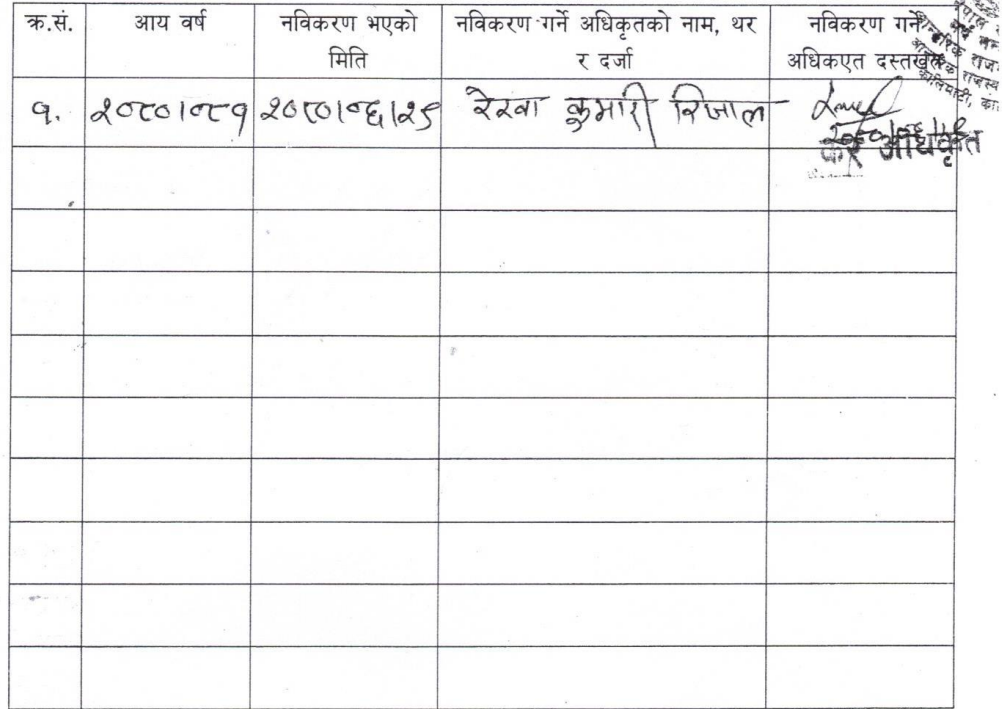 क्र.सं. आय वर्ष नविकरण भएको मिति नविकरण गर्ने अधिकृतको नाम, थर र दर्जा नविकरण गर्ने अधिकएत दस्तखत
१. २०८०।०८१ २०८०।०६।२९ रेखा कुमारी रिजाल
कर अधिकृत